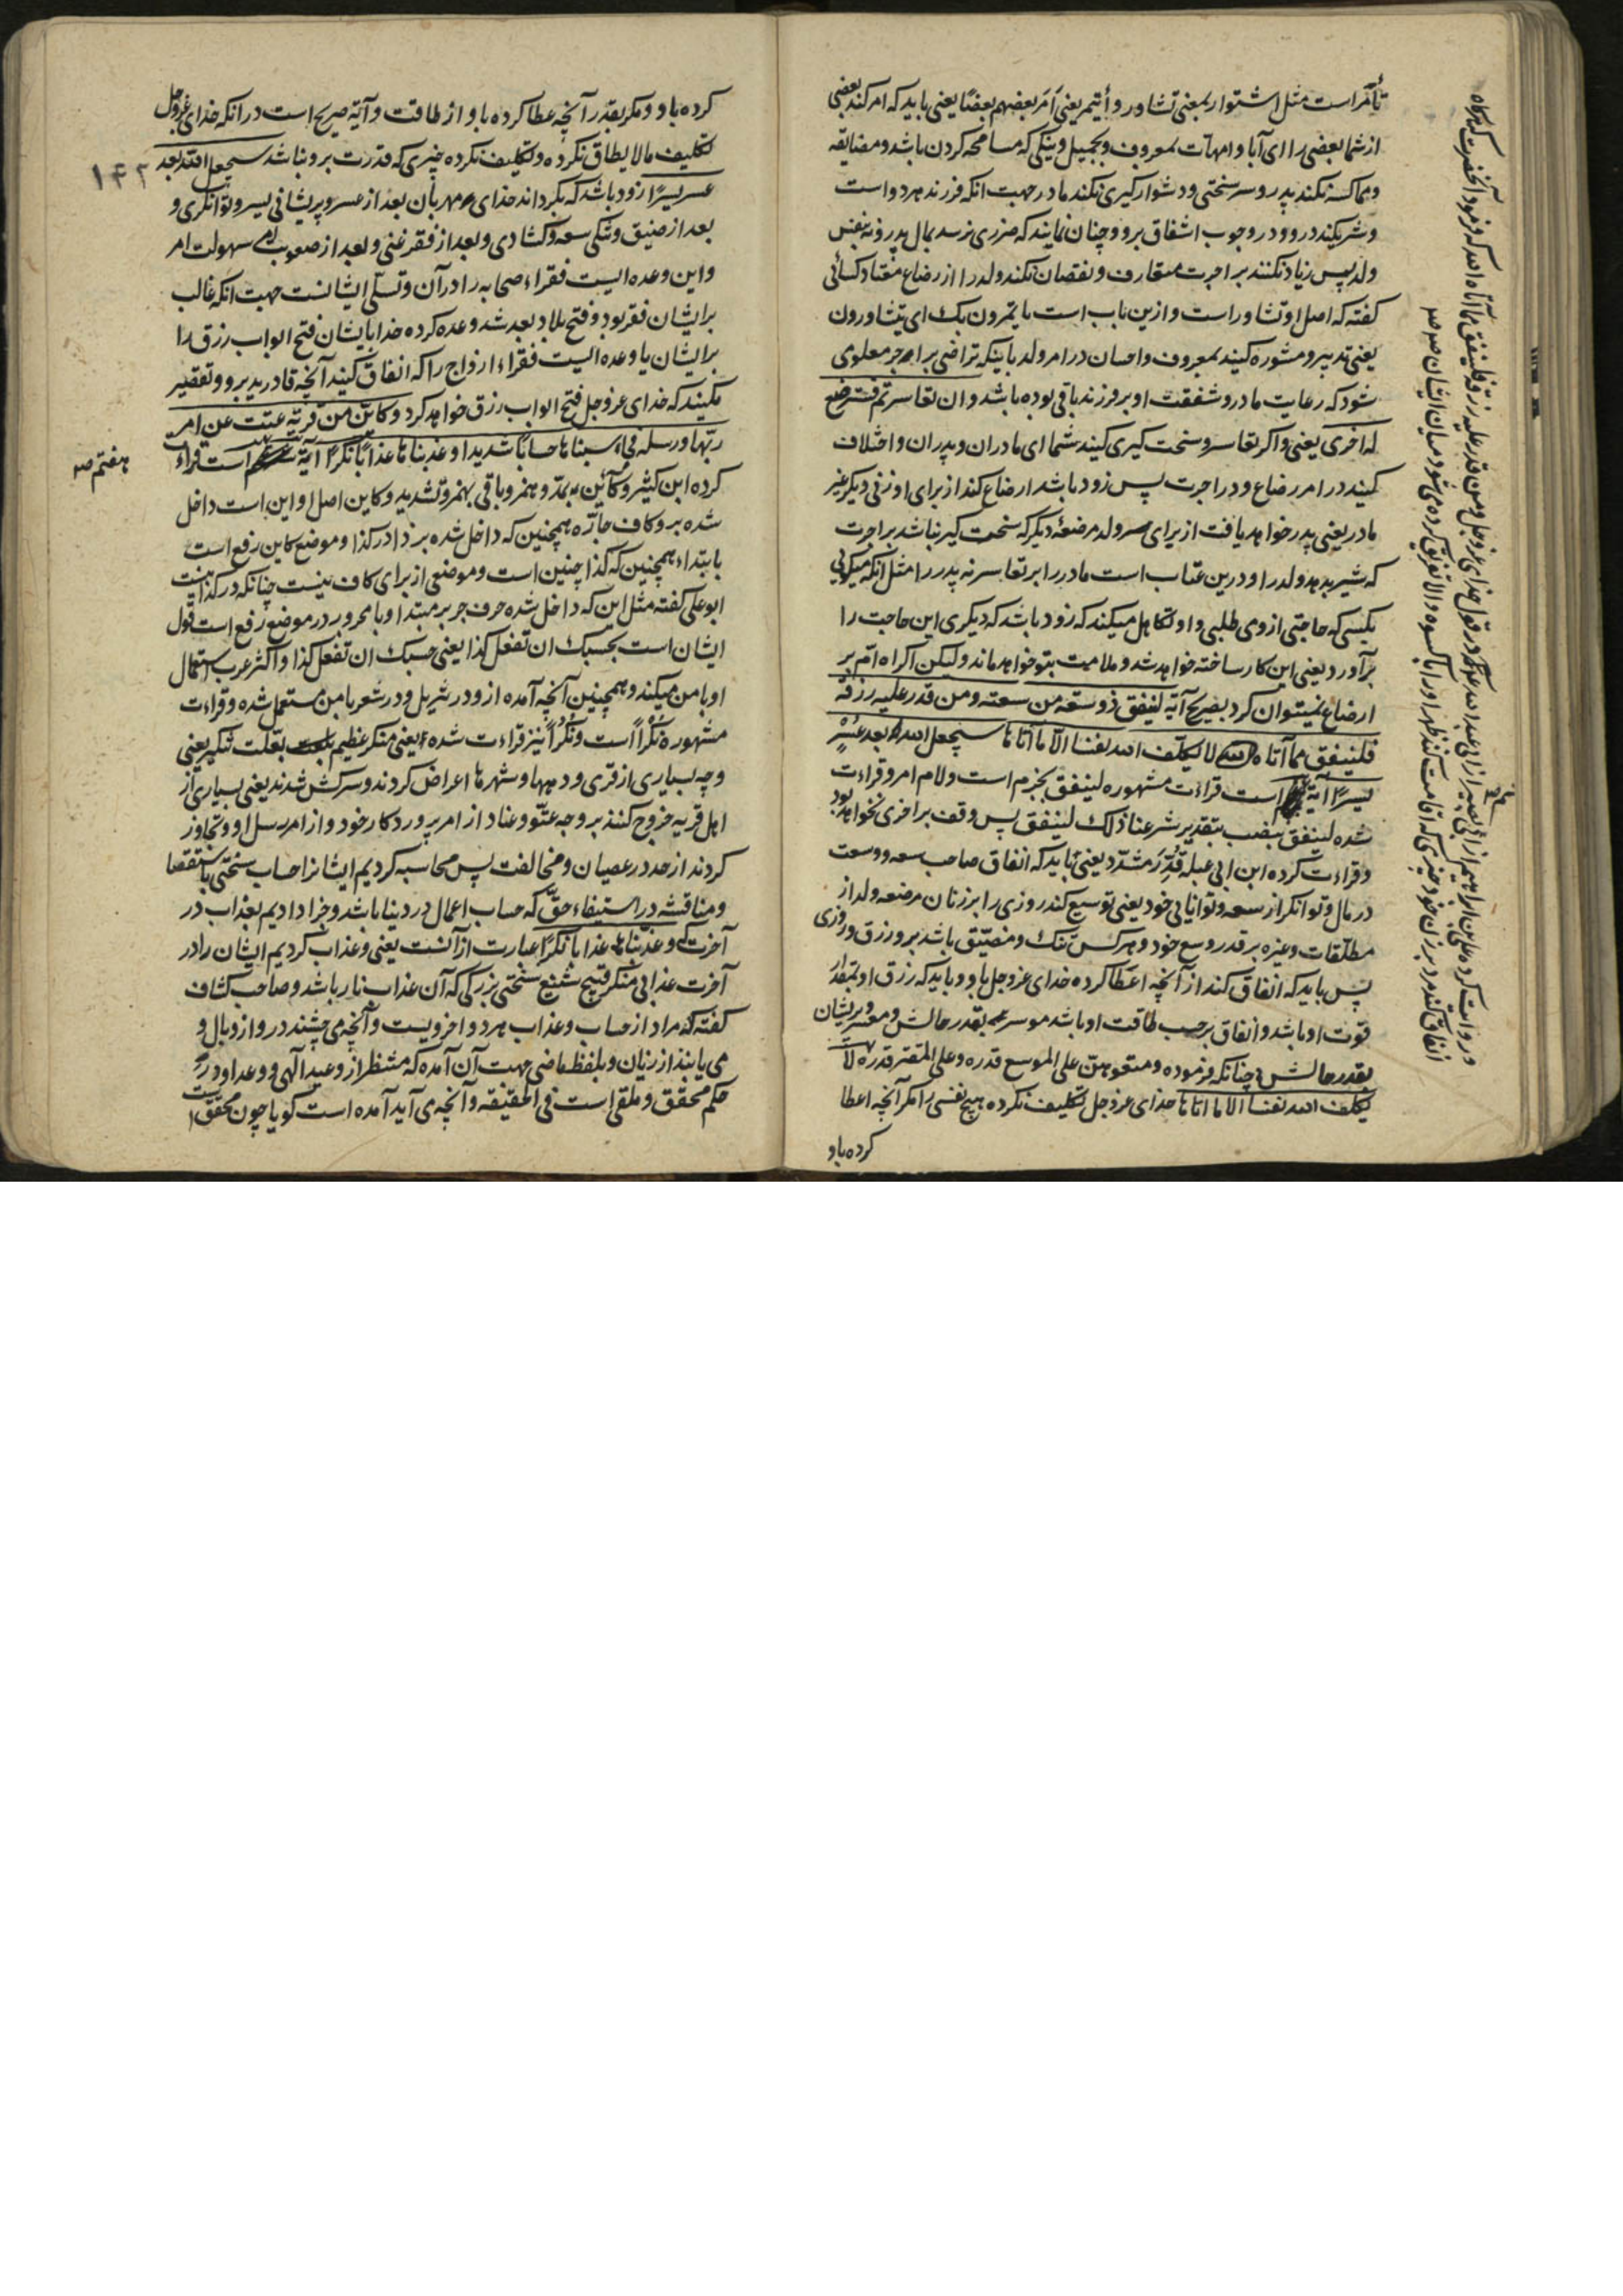 تأمّر است مثل اشتوار بمعنی تشاور و أیتمر یعنی اَمَرَ بعضهم بعضًا یعنی باید که امر کند بعضی
از شما بعضی را ای آبا و امهات بمعروف و بجمیل و نیکی که مسامحه کردن باشد و مضایقه
و مماکسه نکند پدر و سر سختی و دشوار گیری نکند مادر جهت انکه فرزند هر دو است
و شریکند در وو در وجوب اشفاق برو و چنان نمایند که ضرری نرسد بمال پدر و نه بنفس
ولد پس زیاد نکنند بر اجرت متعارف و نقصان نکند ولد را از رضاع معتاد کسائی
گفته که اصل او تشاور است و ازین باب است یأتمرون بک ای یتشاورون
یعنی تدبیر و مشوره کنید بمعروف و احسان در امر ولد باینکه تراضی بر اجر معلومی
شود که رعایت مادر و شفقت او بر فرزند باقی بوده باشد و ان تعاسرتم فسترضع
له اخری یعنی و اگر تعاسر و سخت گیری کنید شما ای مادران و پدران و اختلاف
کنید در امر رضاع و در اجرت پس زود باشد ارضاع کند از برای او زنی دیگر غیر
مادر یعنی پدر خواهد یافت از برای ولد مرضعهٔ دیگر که سخت گیر نباشد بر اجرت
که شیر بدهد ولد را و درین عتاب است مادر را بر تعاسر نه پدر را مثل انکه میگوئی
بکسی که حاجتی از وی طلبی و او تکاهل میکند که زود باشد که دیگری این حاجت را
برآورد یعنی این کار ساخته خواهد شد و ملامیت بتو خواهد ماند و لیکن اکراه ام بر
ارضاع نمیتوان کرد بصریح آیهٔ لینفق ذو سعته من سعته و من قدر علیه رزقه
فلینفق مما آتاه الله لا یکلّف الله نفسًا الاّ ما آتاها سیجعل الله بعد عسرٍ
یسرًا آیهٔ است قراءت مشهوره لینفق بجزم است و لام امر و قراءت
شده لینفق بنصب بتقدیر شرعنا ذلک لینفق پس وقف بر اخری نخواهد بود
و قراءت کرده ابن ابی عبله قُدِّرَ مشدّد یعنی باید که انفاق صاحب سعه و وسعت
در مال و توانگر از سعه و توانایی خود یعنی توسیع کند روزی را بر زنان مرضعه ولد از
مطلّقات و غیره بر قدر وسع خود و هر کس تنک و مضیّق باشد برو رزق و روزی
پس باید که انفاق کند از آنچه اعطا کرده خدای عز و جل باو و باید که رزق او بمقدار
قوت او باشد و انفاق برحسب طاقت او باشد موسر بقدر حالش و معسر و پریشان
بقدر حالش چنانکه فرموده و متعوهنّ علی الموسع قدره و علی المقتر قدره لا
یکلف الله نفسًا الا ما اتاها خدای عز و جل تکلیف نکرده هیچ نفسی را مگر آنچه اعطا
کرده باو
و روایت کرده علی بن ابراهیم از ابی بصیر از ابی عبد الله ع در قول خدای عز و جل و من قدر علیه رزقه فلینفق مما آتاه الله که فرمود آنحضرت که هرگاه
انفاق کند مرد بر زن خود چیزی که اقامت کند ظهر او را با کسوه و الا تفریق کرده می شود میان ایشان
کرده باو و مگر بقدر آنچه عطا کرده باو از طاقت و آیهٔ صریح است در انکه خدای عز و جل
تکلیف ما لا یطاق نکرده و تکلیف نکرده چیزی که قدرت برو نباشد سیجعل الله بعد
۱۴۲
عسر یسرًا زود باشد که بگرداند خدای مهربان بعد از عسر و پریشانی یسر و توانگری و
بعد از ضیق و تنگی سعه و کشادی و بعد از فقر غنی و بعد از صعوبت سهولت امر
و این وعده ایست فقراء صحابه را در آن و تسلّی ایشانست جهت انکه غالب
بر ایشان فقر بود و فتح بلاد بعد شد وعده کرده خدا بایشان فتح ابواب رزق را
بر ایشان یا وعده ایست فقراء ازواج را که انفاق کنید آنچه قادرید برو و تقصیر
مکنید که خدای عز و جل فتح ابواب رزق خواهد کرد و کایّن من قریة عتت عن امر
ربّها و رسله فحاسبناها حسابًا شدیدا و عذبناها عذابًا نکرًا آیهٔ است قراءت
هفتم
کرده ابن کثیر و کآئن بمدّ و همز و باقی بهمز و تشدید و کاین اصل او این است داخل
شده برو کاف جارّه همچنین که داخل شده بر ذا در کذا و موضع کاین رفع است
بابتداء همچنین که کذا چنین است و موضعی از برای کاف نیست چنانکه در کذا نیست
ابو علی گفته مثل این که داخل شده حرف جر بر مبتدا و با مجرور در موضع رفع است قول
ایشان است بحسبک ان تفعل کذا یعنی حسبک ان تفعل کذا و اکثر عرب استعمال
او با من میکند و همچنین آنچه آمده ازو در تنزیل و در شعر با من مستعمل شده و قراءت
مشهوره نُکْرًا است و نُکُرًا نیز قراءت شده یعنی منکر عظیم بعلت تنکیر یعنی
و چه بسیاری از قری و دهها و شهرها اعراض کردند و سرکش شدند یعنی بسیاری از
اهل قریه خروج کنند بر وجه عتوّ و عناد از امر پروردکار خود و از امر رسل او و تجاوز
کردند از حد در عصیان و مخالفت پس محاسبه کردیم ایشانرا حساب سختی باستقصا
و مناقشه در استیفاء حقّ که حساب اعمال در دنیا باشد و جزا دادیم بعذاب در
آخرت و عذبناها عذابا نکرًا عبارت از آنست یعنی و عذاب کردیم ایشان را در
آخرت عذابی منکر قبیح شنیع سختی بزرگی که آن عذاب نار باشد و صاحب کشاف
گفته که مراد از حساب و عذاب هر دو اخرویست و آنچه می چشند درو از وبال و
می یابند از زیان و بلفظ ماضی جهت آن آمده که منتظر از وعید آلهی و وعد او در
حکم محقّق و ملقی است فی الحقیقه و آنچه می آید آمده است گویا چون محقق است